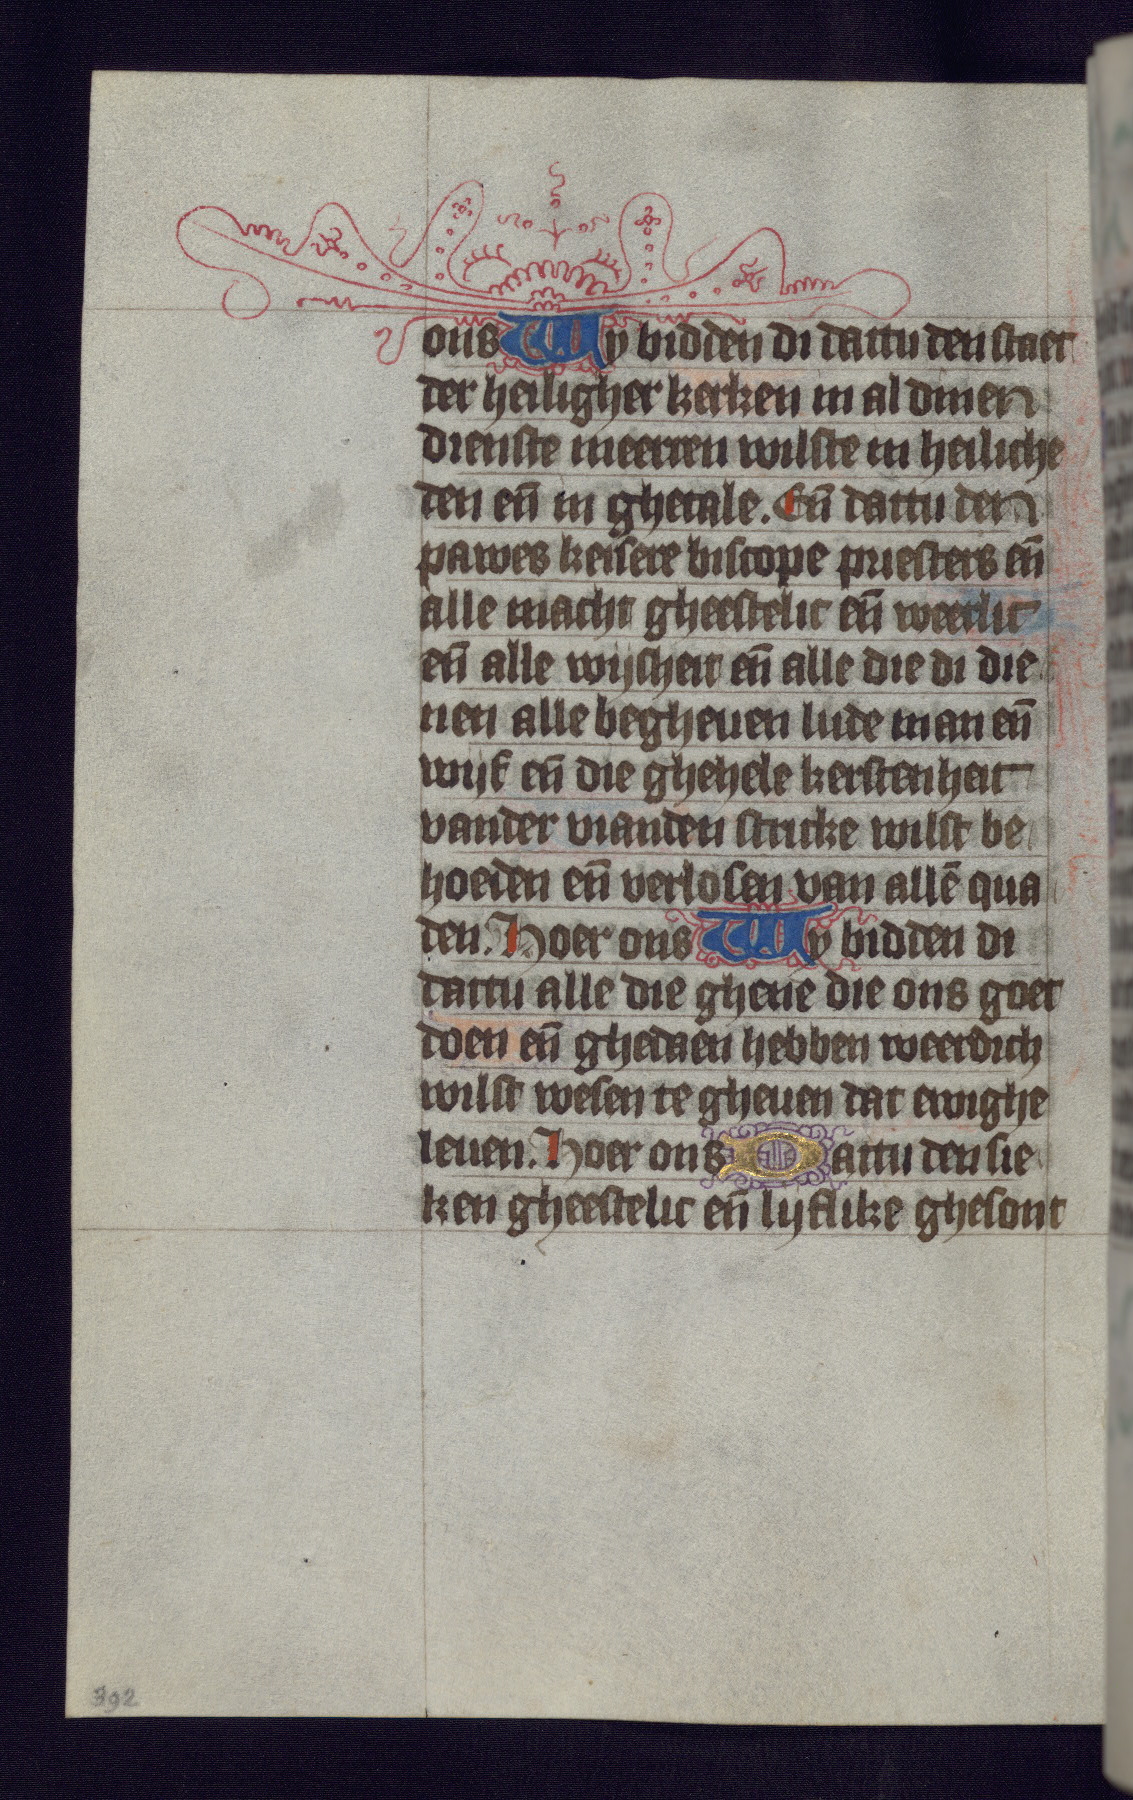 ons Wy bidden di dattu den staet
der heiligher kerken in al dinen
dienste meerren wilste in heiliche
den en̄ in ghetale. En̄ dattu den
pawes keisere biscope priesters en̄
alle macht gheestelic en̄ weerlic
en̄ alle wijsheit en̄ alle die di die
nen alle begheuen lude man en̄
wijf en̄ die ghehele kerstenheit
vander vianden stricke wilst be
hoeden en̄ verlosen van allē qua
den. Hoer ons Wy bidden di
dattu alle die ghene die ons goet
doen en̄ ghedaen hebben weerdich
wilst wesen te gheuen dat ewighe
leuen. Hoer ons Dattu den sie
ken gheestelic en̄ lijflike ghesont
392